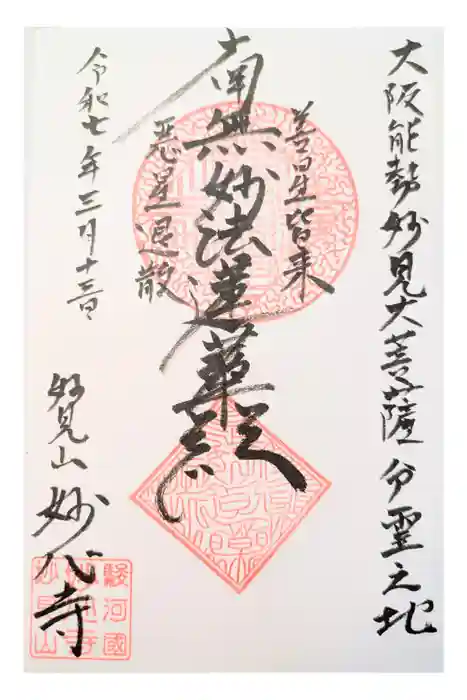 大阪能勢妙見大菩薩分霊之地
善星皆来
南無妙法蓮華経
悪星退散
令和七年三月十三日
妙見山 妙心寺
駿河國
妙心寺
妙見山